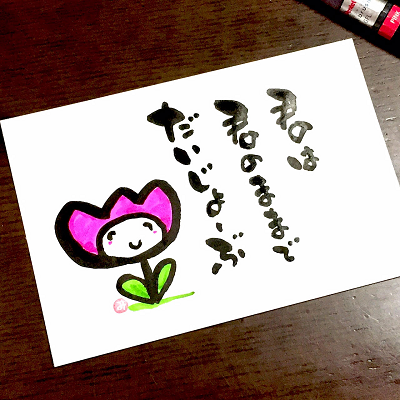 君は
君のままで
だいじょーぶ